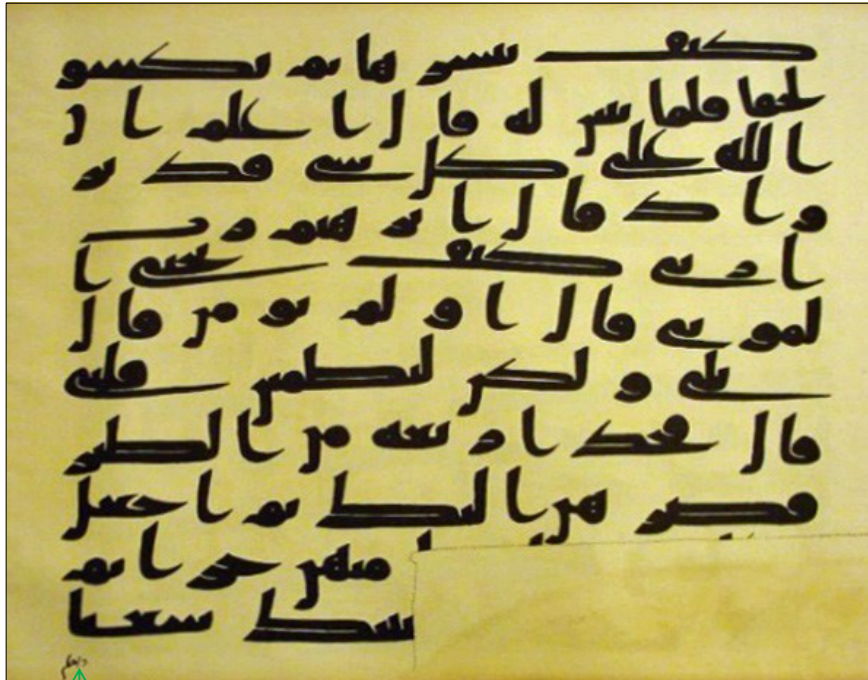 كيف ننشزها ثم نكسو
لحما فلما تبين له قال اعلم ان
الله على كل شي قدير
واذ قال ابرهيم رب
ارني كيف تحيي ا
لموتى قال اولم تومن قال
بلى ولكن ليطمين قلبي
قال فخذ اربعه من الطير
فصرهن اليك ثم اجعل
منهن جزا ثم
ينك سعيا